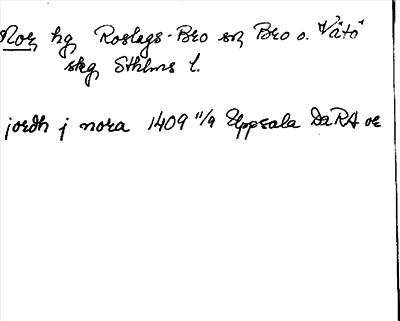 Nor, hg, Roslags-Bro sn, Bro o. Vätö
skg, Sthlms l.
jordh j nora 1409 11/9 Uppsala DaRA or